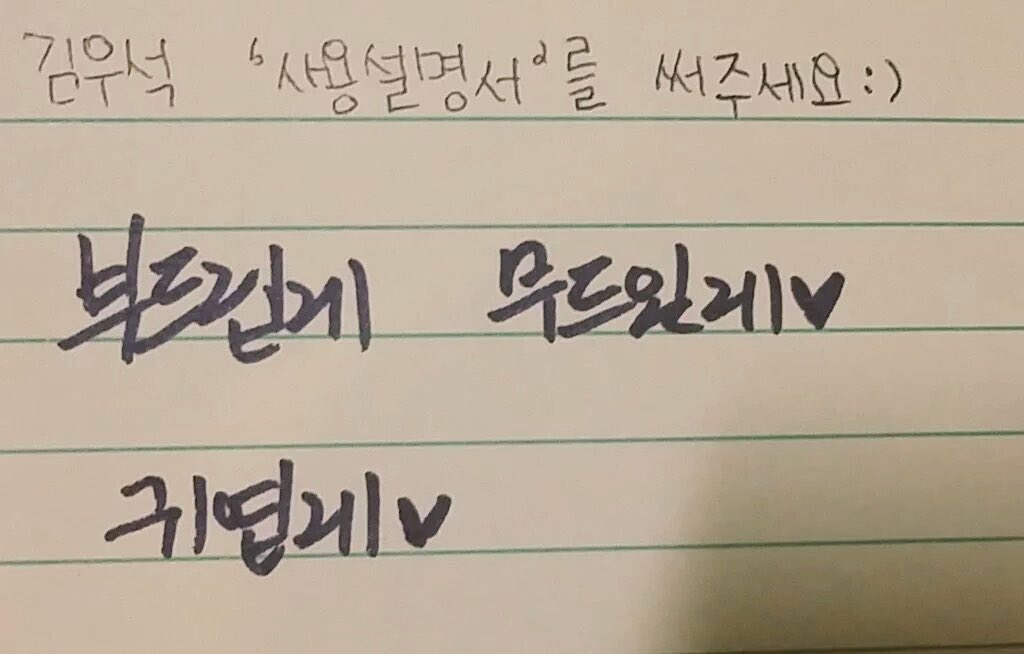 김우석 '사용설명서'를 써주세요:)
부드럽게 무드있게♥
귀엽게♥